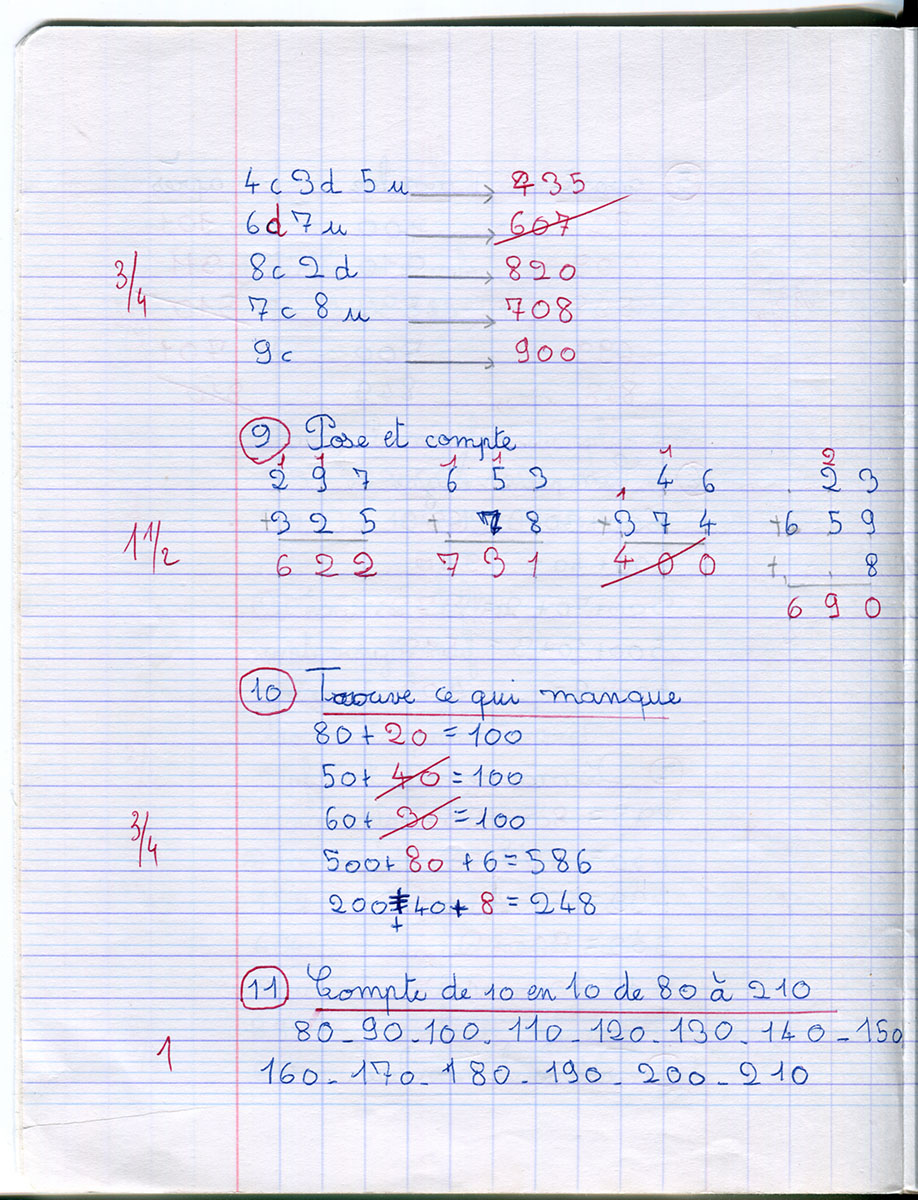 4c 3d 5u → 435
6d 7u → 607
8c 2d → 820
3/4
7c 8u → 708
9c → 900
9 Pose et compte
1 1 1 1 1 2
2 9 7 6 5 3 4 6 2 3
1
+3 2 5 + 7 8 +3 7 4 +6 5 9
1 1/2
6 2 2 7 3 1 4 0 0 + 8
6 9 0
10 Trouve ce qui manque
80 + 20 = 100
50 + 40 = 100
60 + 30 = 100
3/4
500 + 80 + 6 = 586
200 + 40 + 8 = 248
+
11 Compte de 10 en 10 de 80 à 210
80 - 90 - 100 - 110 - 120 - 130 - 140 - 150
1
160 - 170 - 180 - 190 - 200 - 210